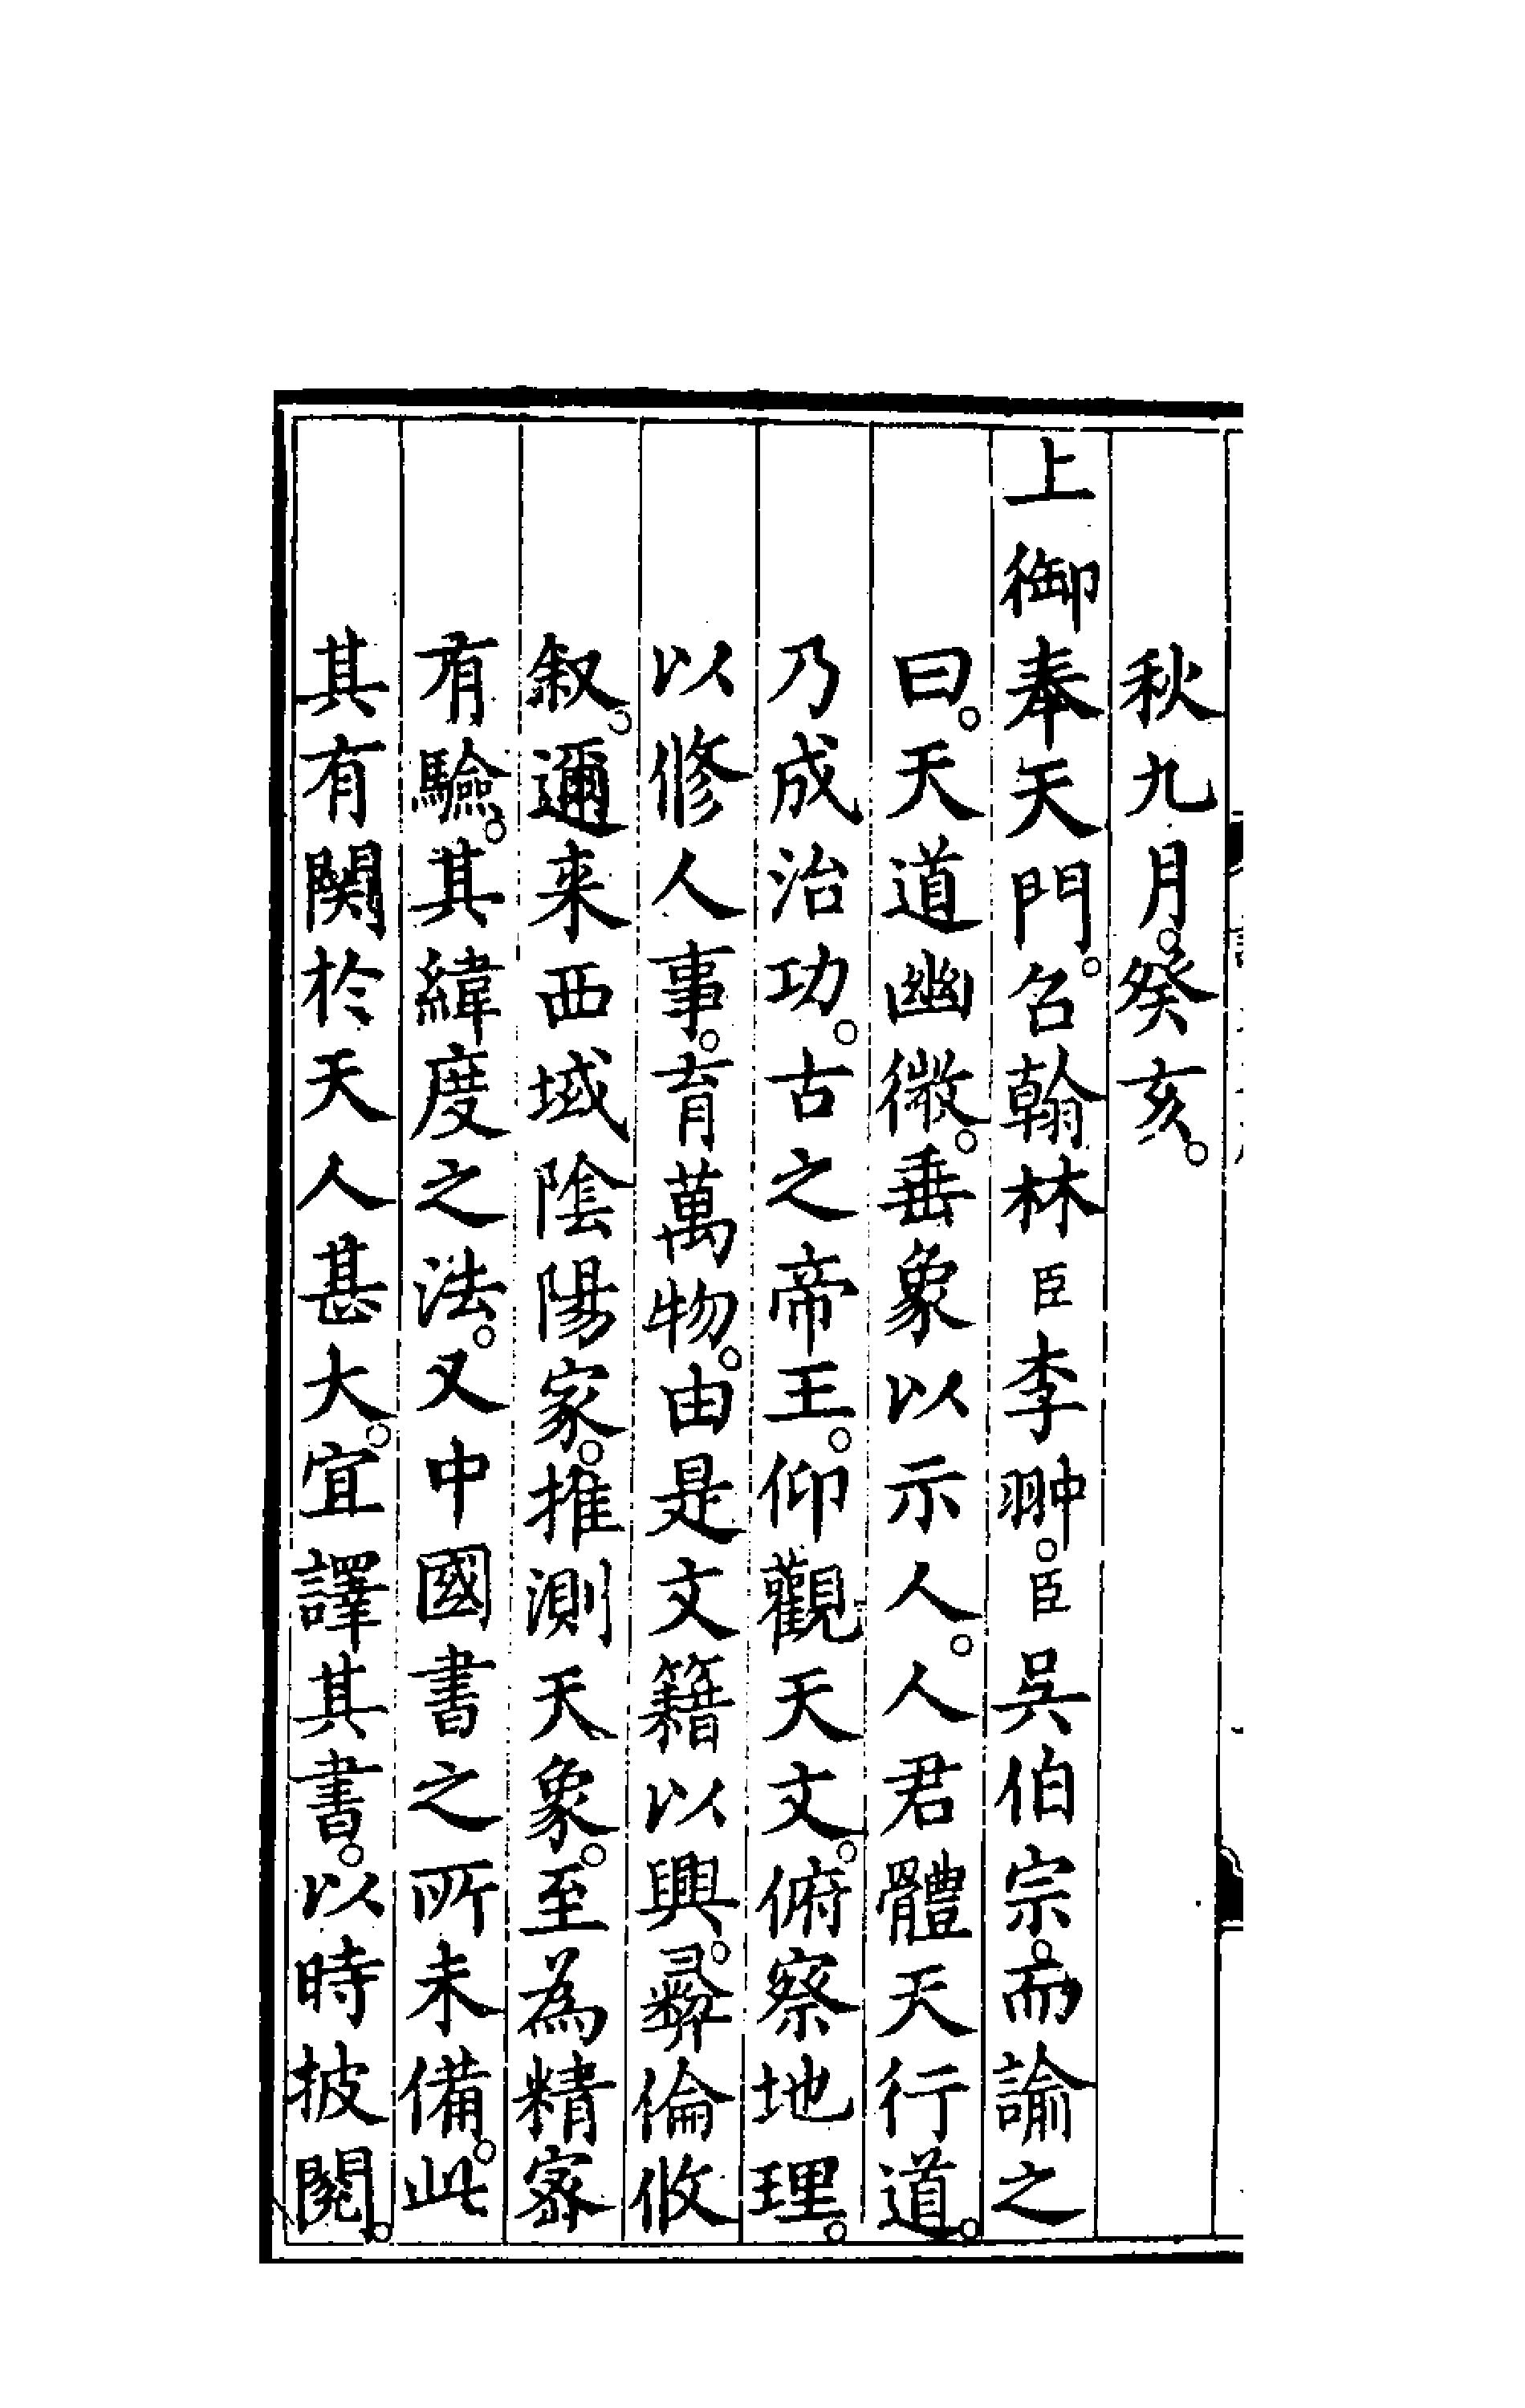 秋九月。癸亥。
上御奉天門。召翰林臣李翀。臣吳伯宗。而諭之
曰。天道幽微。垂象以示人。人君體天行道。
乃成治功。古之帝王。仰觀天文。俯察地理。
以修人事。育萬物。由是文籍以興。彝倫攸
叙。邇来西域陰陽家。推測天象。至為精密
有驗。其緯度之法。又中國書之所未備。此
其有関於天人甚大。宜譯其書。以時披閱。